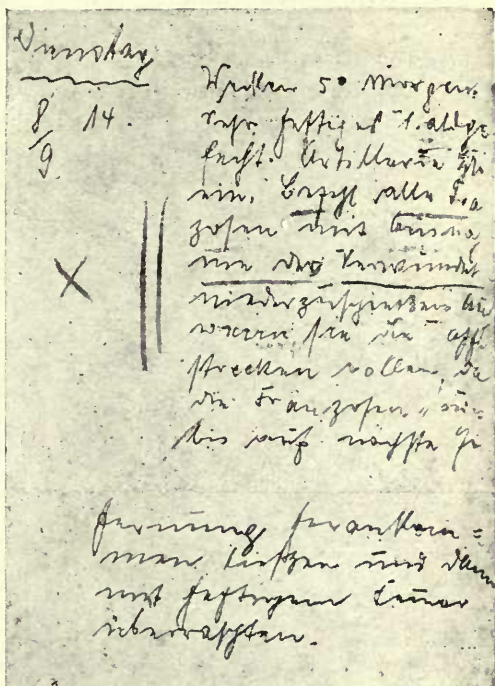 Dienstag
8/9 14.
5° Morgen
sehr heftiges
fecht. Artillerie
ein. Befehl alle Fra
zosen mit Ausna
me der Verwundet
niederzuschießen au
wenn sie die
strecken wollen, da
die Franzosen uns
bis auf nächste
fernung herankom=
men ließen und dann
mit heftigem Feuer
überraschten.